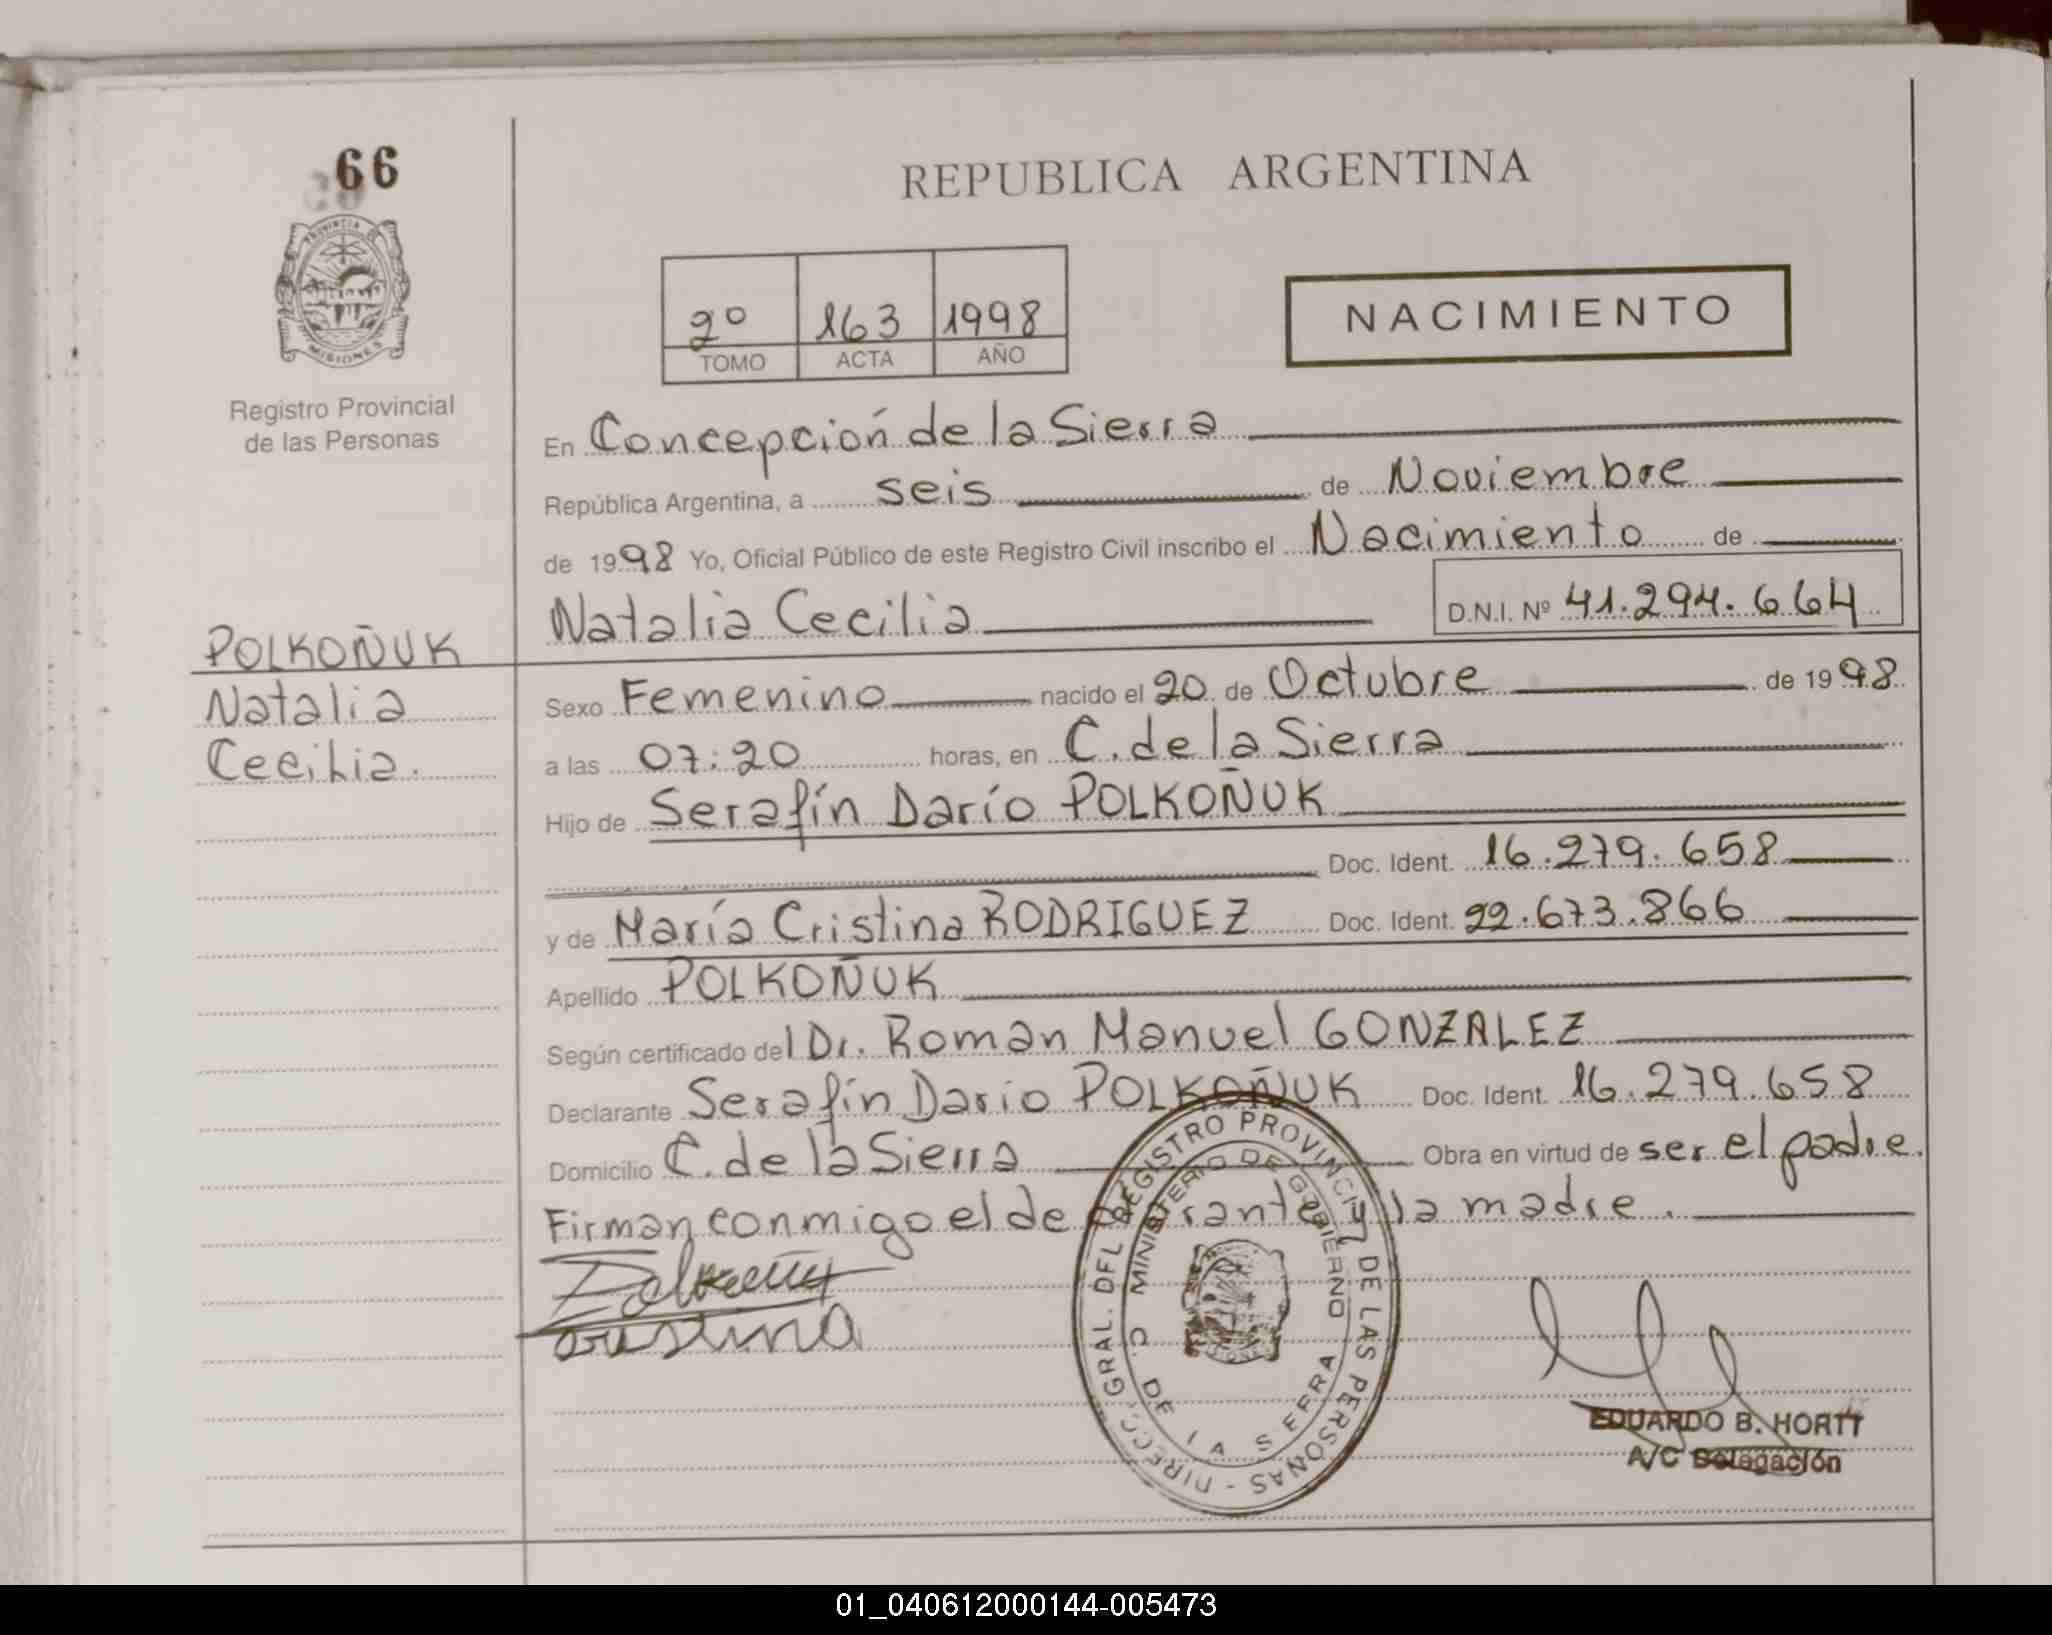 66
PROVINCIA DE
MISIONES
Registro Provincial
de las Personas
REPUBLICA ARGENTINA
2º 163 1998
TOMO ACTA AÑO
NACIMIENTO
En Concepción de la Sierra
República Argentina, a seis de Noviembre
de 1998 Yo, Oficial Público de este Registro Civil inscribo el Nacimiento de
Natalia Cecilia D.N.I. Nº 41.294.664
POLKOÑUK
Natalia
Cecilia.
Sexo Femenino nacido el 20 de Octubre de 1998
a las 07:20 horas, en C. de la Sierra
Hijo de Serafín Darío POLKOÑUK
Doc. Ident. 16.279.658
y de María Cristina RODRIGUEZ Doc. Ident. 22.673.866
Apellido POLKOÑUK
Según certificado del Dr. Roman Manuel GONZALEZ
Declarante Serafín Dario POLKOÑUK Doc. Ident. 16.279.658
Domicilio C. de la Sierra Obra en virtud de ser el padre.
Firman conmigo el declarante y la madre.
cristina
DIRECC. GRAL. DEL REGISTRO PROVINCIAL DE LAS PERSONAS -
MINISTERIO DE GOBIERNO
C. DE LA SIERRA
EDUARDO B. HORTT
A/C Delegación
01_040612000144-005473